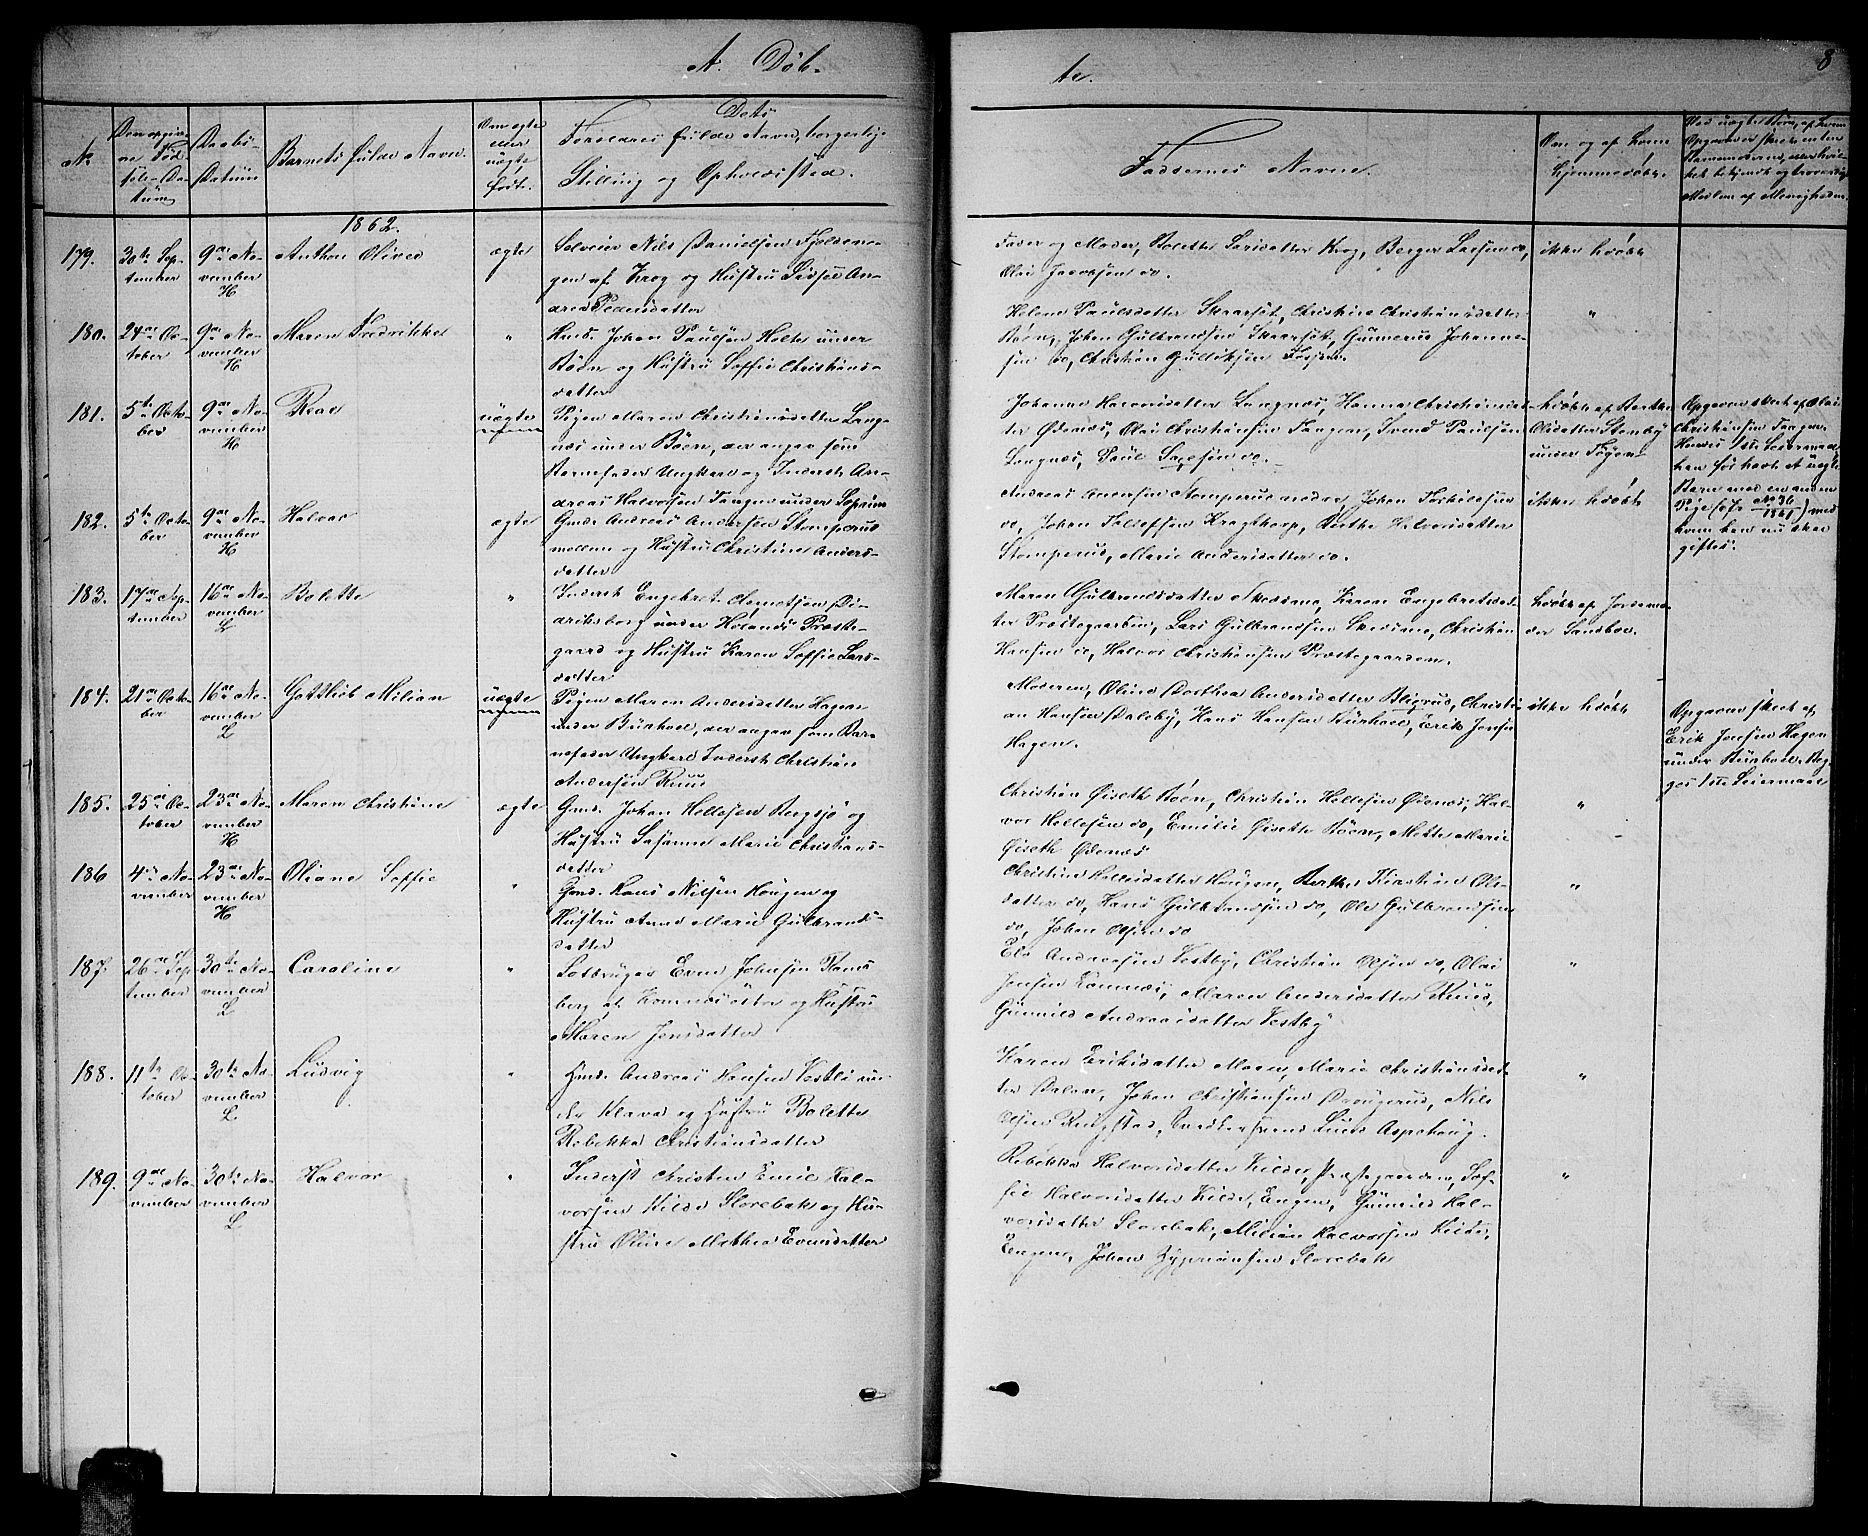 A. Døb-
te.
8
No
Den opgiv-
ne Fød-
sels-Da-
tum
Daabs-
Datum
Barnets fulde Navn.
Om ægte
eller
uægte
født.
Dets
Forældres fulde Navn, borgerlige
Stilling og Opholdssted.
Faddernes Navne.
Om og af hvem
hjemmedøbt.
1862.
179.
30te Sep-
tember
9de No-
vember
H
Anthon Oliver
ægte
Selveier Nils Danielsen Fjeldsen-
gen af Krog og Hustru Sidsel An-
drea Pedersdatter
Fader og Moder, Bolette Larsdatter Krog, Berger Larsen do,
Olai Jacobsen do.
ikke hdøbt
180.
24de Oc-
tober
9de No-
vember
H
Maren Fredrikke
"
Huusm. Johan Paulsen Holte under
Bøen og Hustru Soffie Christians-
datter
Helene Paulsdatter Skaarsøt, Christine Christiansdatter
Bøen, Johan Gulbrandsen Skaarsøt, Gunnerus Johanne-
sen do, Christian Gulliksen Fossen.
"
181.
5te Octo-
ber
9de No-
vember
H
uægte
Pigen Maren Christiansdatter Lang-
næs under Bøen, der angav som
Barnefader Ungkarl og Inderst An-
dreas Halvorsen Tangen under Soprim
Johanne Halvorsdatter Langnæs, Hanna Christiansdat-
ter Ødenæs, Olai Christiansen Tangen, Svend Paulsen
Langnæs, Paul Larsen do.
hdøbt af Berthe
Olsdatter Stenby
under Fogen
Opgaven skeet af Olai
Christiansen Tangen.
Hendes 1ste Leiermaal,
han før havt et uægte
Barn med en anden
Pige (cfr No 36/1861) med
hvem han nu skal
giftes.
182.
5te Octo-
ber
9de No-
vember
H
Halvor
ægte
Gmd. Andreas Andersen Stomperud
mellem og Hustru Christine Anders-
datter
Andreas Andersen Stomperud nedre, Johan Torkildsen
do, Johan Tollefsen Kragtorp, Berthe Halvorsdatter
Stomperud, Marie Andersdatter do.
ikke hdøbt
183.
17de Sep-
tember
16de No-
vember
L
Bolette
"
Inderst Engebret Arnetsen Di-
driksborg under Hølands Præste-
gaard og Hustru Karen Soffie Lars-
datter
Maren Gulbrandsdatter Skedsmo, Karen Engebretsdat-
ter Præstegaarden, Lars Gulbrandsen Skedsmo, Christian
Hansen do, Halvor Christiansen Præstegaarden.
hdøbt af Jordemo-
der Sandbæk.
184.
21de Octo-
ber
16de No-
vember
L
Gottlieb Milian
uægte
Pigen Maren Andersdatter Hagen
under Buerhol, der angav som Bar-
nefader Ungkarl Inderst Christian
Andersen Ruud
Moderen, Oline Dorthea Andersdatter Bligrud, Christi-
an Hansen Daleby, Hans Hansen Buerhol, Erik Jensen
Hagen.
ikke hdøbt
Opgaven skeet af
Erik Jensen Hagen
under Buerhol. Beg-
ges 1ste Leiermaal
185.
25de Oc-
tober
23de No-
vember
H
Maren Christine
ægte
Gmd. Johan Hellesen Bergsjø og
Hustru Susanne Marie Christians-
datter
Christian Giseth Bøen, Christian Hellesen Ødenæs, Hal-
vor Hellesen do, Emilie Gisette Bøen, Mette Marie
Giseth Ødenæs
"
186
4de No-
vember
23de No-
vember
H
Oliane Soffie
"
Gmd. Hans Nilsen Hougen og
Hustru Anne Marie Gulbrands-
datter
Christine Hellesdatter Hougen, Berthe Kirstine Ols-
datter do, Hans Gulbrandsen do, Ole Gulbrandsen
do, Johan Olsen do
"
187.
26de Sep-
tember
30te No-
vember
L
Caroline
"
Lotbruger Even Johnsen Rams-
berg af Komnæs østre og Hustru
Maren Jensdatter
Els Andreasen Vestby, Christian Olsen do, Olai
Jensen Komnæs, Maren Andersdatter Ruud,
Gunnild Andreasdatter Vestby
"
188.
11te Oc-
tober
30te No-
vember
L.
Ludvig
"
Gmd. Andreas Hansen Vestli un-
der Klaved og Hustru Bolette
Rebekka Christiansdatter
Karen Eriksdatter Moen, Marie Christiansdat-
ter Dalen, Johan Christiansen Drougerud, Nils
Olsen Ringstad, Snedker Svend Lund Aspehoug.
"
189.
9de No-
vember
30te No-
vember
L
Halvor
"
Inderst Christen Emil Hal-
vorsen Kilde Slorebæk og Hu-
stru Oline Mathea Evensdatter
Rebekka Halvorsdatter Kilde, Præstegaarden, Sof-
fie Halvorsdatter Kilde, Engen, Gunnild Hal-
vorsdatter Slorebæk, Milian Halvorsen Kilde,
Engen, Johan Zyprianssen Slorebæk
"